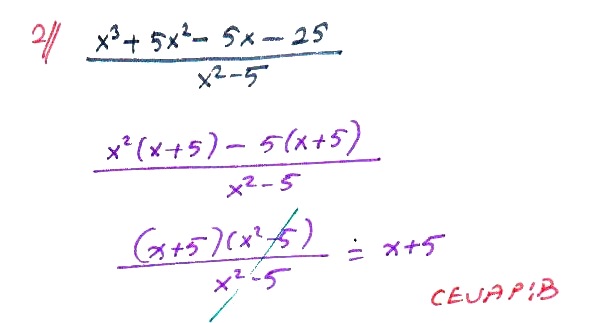 2// x³ + 5x² - 5x - 25
x² - 5
x²(x+5) - 5(x+5)
x² - 5
(x+5)(x²-5) = x+5
x² - 5
CEVAP:B